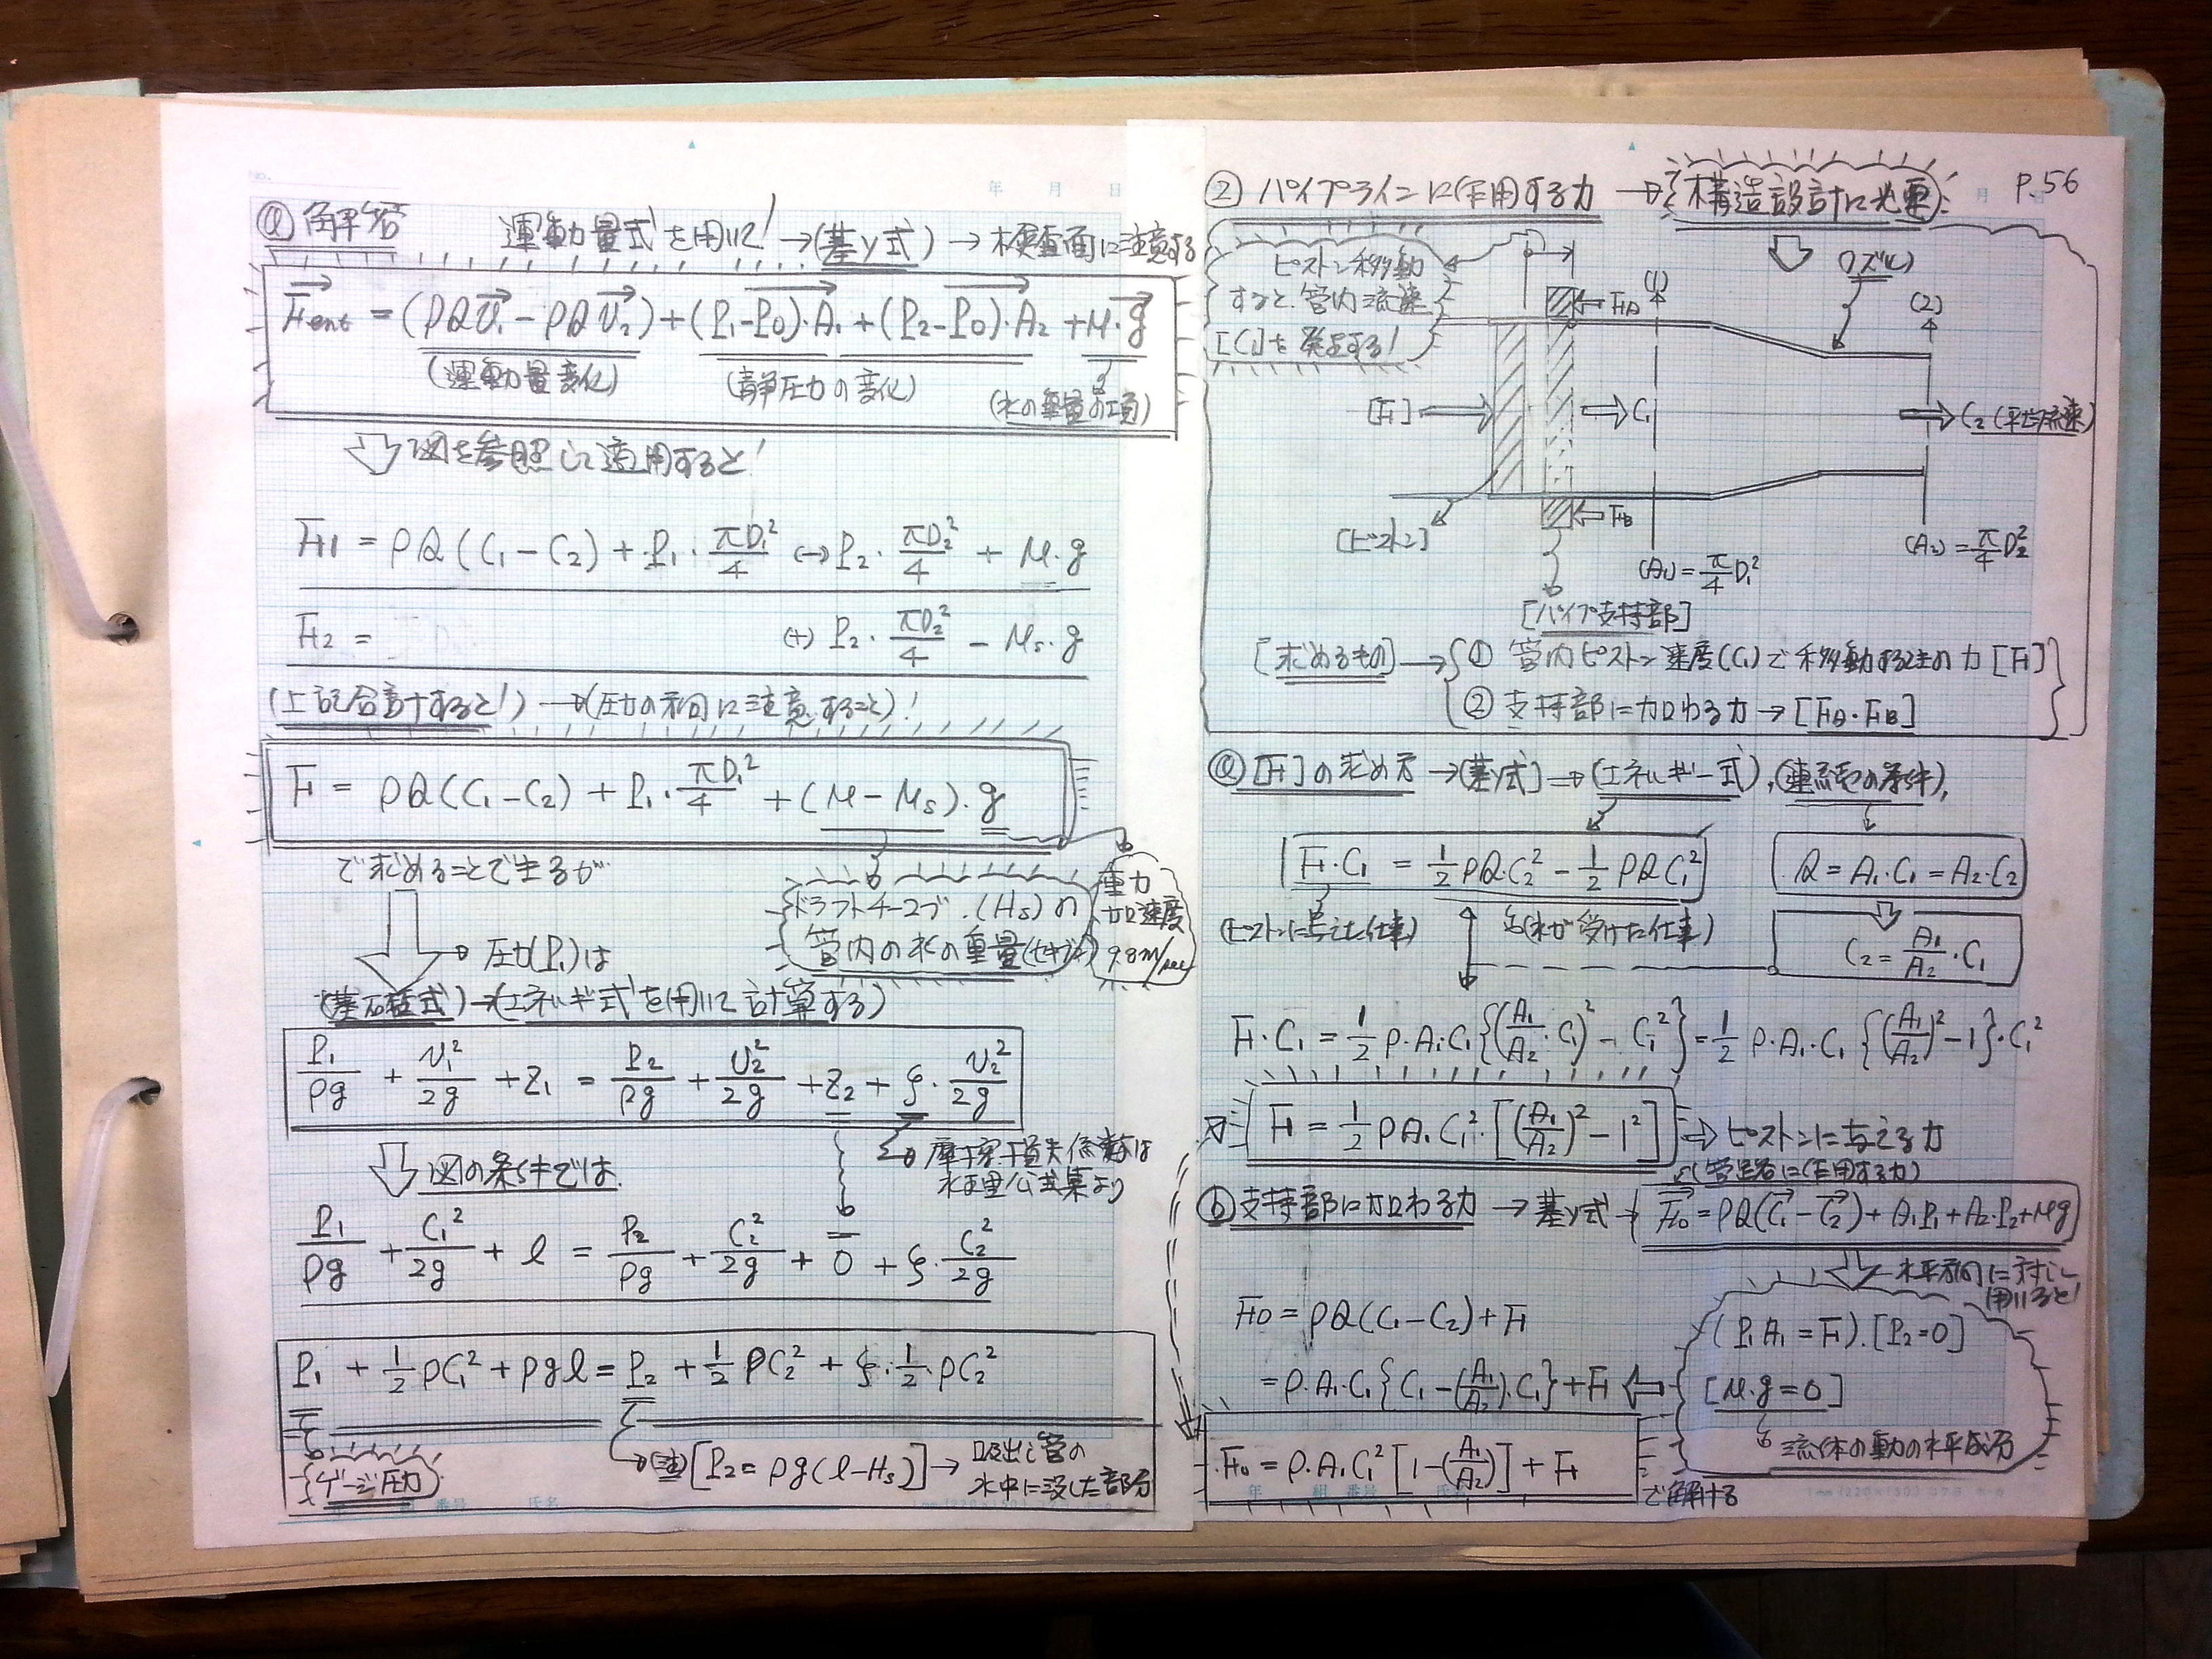 ⓐ 解答 運動量式を用いて! →(基本式) → 検査面に注意する
F ent = (ρQv₁ - ρQv₂) + (P₁-P₀)·A₁ + (P₂-P₀)·A₂ + M·g
(運動量変化) (静圧力の変化) (水の重量の項)
図を参照して適用すると!
F₁ = ρQ(C₁-C₂) + P₁·πD₁²/4 (-) P₂·πD₂²/4 + M·g
F₂ = (+) P₂·πD₂²/4 - Ms·g
(上記合計すると!) →(圧力の方向に注意すること)!
F = ρQ(C₁-C₂) + P₁·πD₁²/4 + (M-Ms)·g
で求めることできるが
ドラフトチューブ (Hs)の
管内の水の重量
重力
加速度
9.8m/sec
圧力(P₁)は
(基礎式)→(エネルギ式を用いて計算する)
P₁/ρg + v₁²/2g + Z₁ = P₂/ρg + v₂²/2g + Z₂ + ζ·v₂²/2g
図の条件では
摩擦損失係数は
水理公式集より
P₁/ρg + C₁²/2g + l = P₂/ρg + C₂²/2g + 0 + ζ·C₂²/2g
P₁ + ½ρC₁² + ρgl = P₂ + ½ρC₂² + ζ·½·ρC₂²
ゲージ圧力
(注)[P₂=ρg(l-Hs)] → 吸出し管の
水中に没した部分
② パイプラインに作用する力 → 構造設計に必要 P.56
ピストン移動
すると、管内流速
[C₁]を発生する!
ノズル
(1)
(2)
FA
[F]
C₁
C₂ (平均流速)
FB
[ピストン]
(A₁)=π/4 D₁²
(A₂)=π/4 D₂²
[パイプ支持部]
[求めるもの] → ① 管内ピストン速度(C₁)で移動するときの力[F]
② 支持部に加わる力 → [FA·FB]
ⓐ [F]の求め方 →[基本式] ⇒ (エネルギー式), (連続の条件),
F·C₁ = ½ρQC₂² - ½ρQC₁²
Q = A₁·C₁ = A₂·C₂
(ピストンに与えた仕事) (水が受けた仕事)
C₂ = A₁/A₂·C₁
F·C₁ = ½ρ·A₁·C₁{(A₁/A₂·C₁)² - C₁²} = ½ρ·A₁·C₁{(A₁/A₂)²-1}·C₁²
F = ½ρA₁C₁²·[(A₁/A₂)²-1²] ⇒ ピストンに与える力
(管路に作用する力)
ⓑ 支持部に加わる力 → 基本式 → F₀ = ρQ(C₁-C₂) + A₁P₁ + A₂·P₂ + Mg
水平方向に対し
用いると!
F₀ = ρQ(C₁-C₂) + F
(P₁A₁=F).[P₂=0]
= ρ·A₁·C₁{C₁-(A₁/A₂)·C₁} + F
[M·g=0]
流体の重力の水平成分
F₀ = ρ·A₁C₁²[1-(A₁/A₂)] + F
で解ける